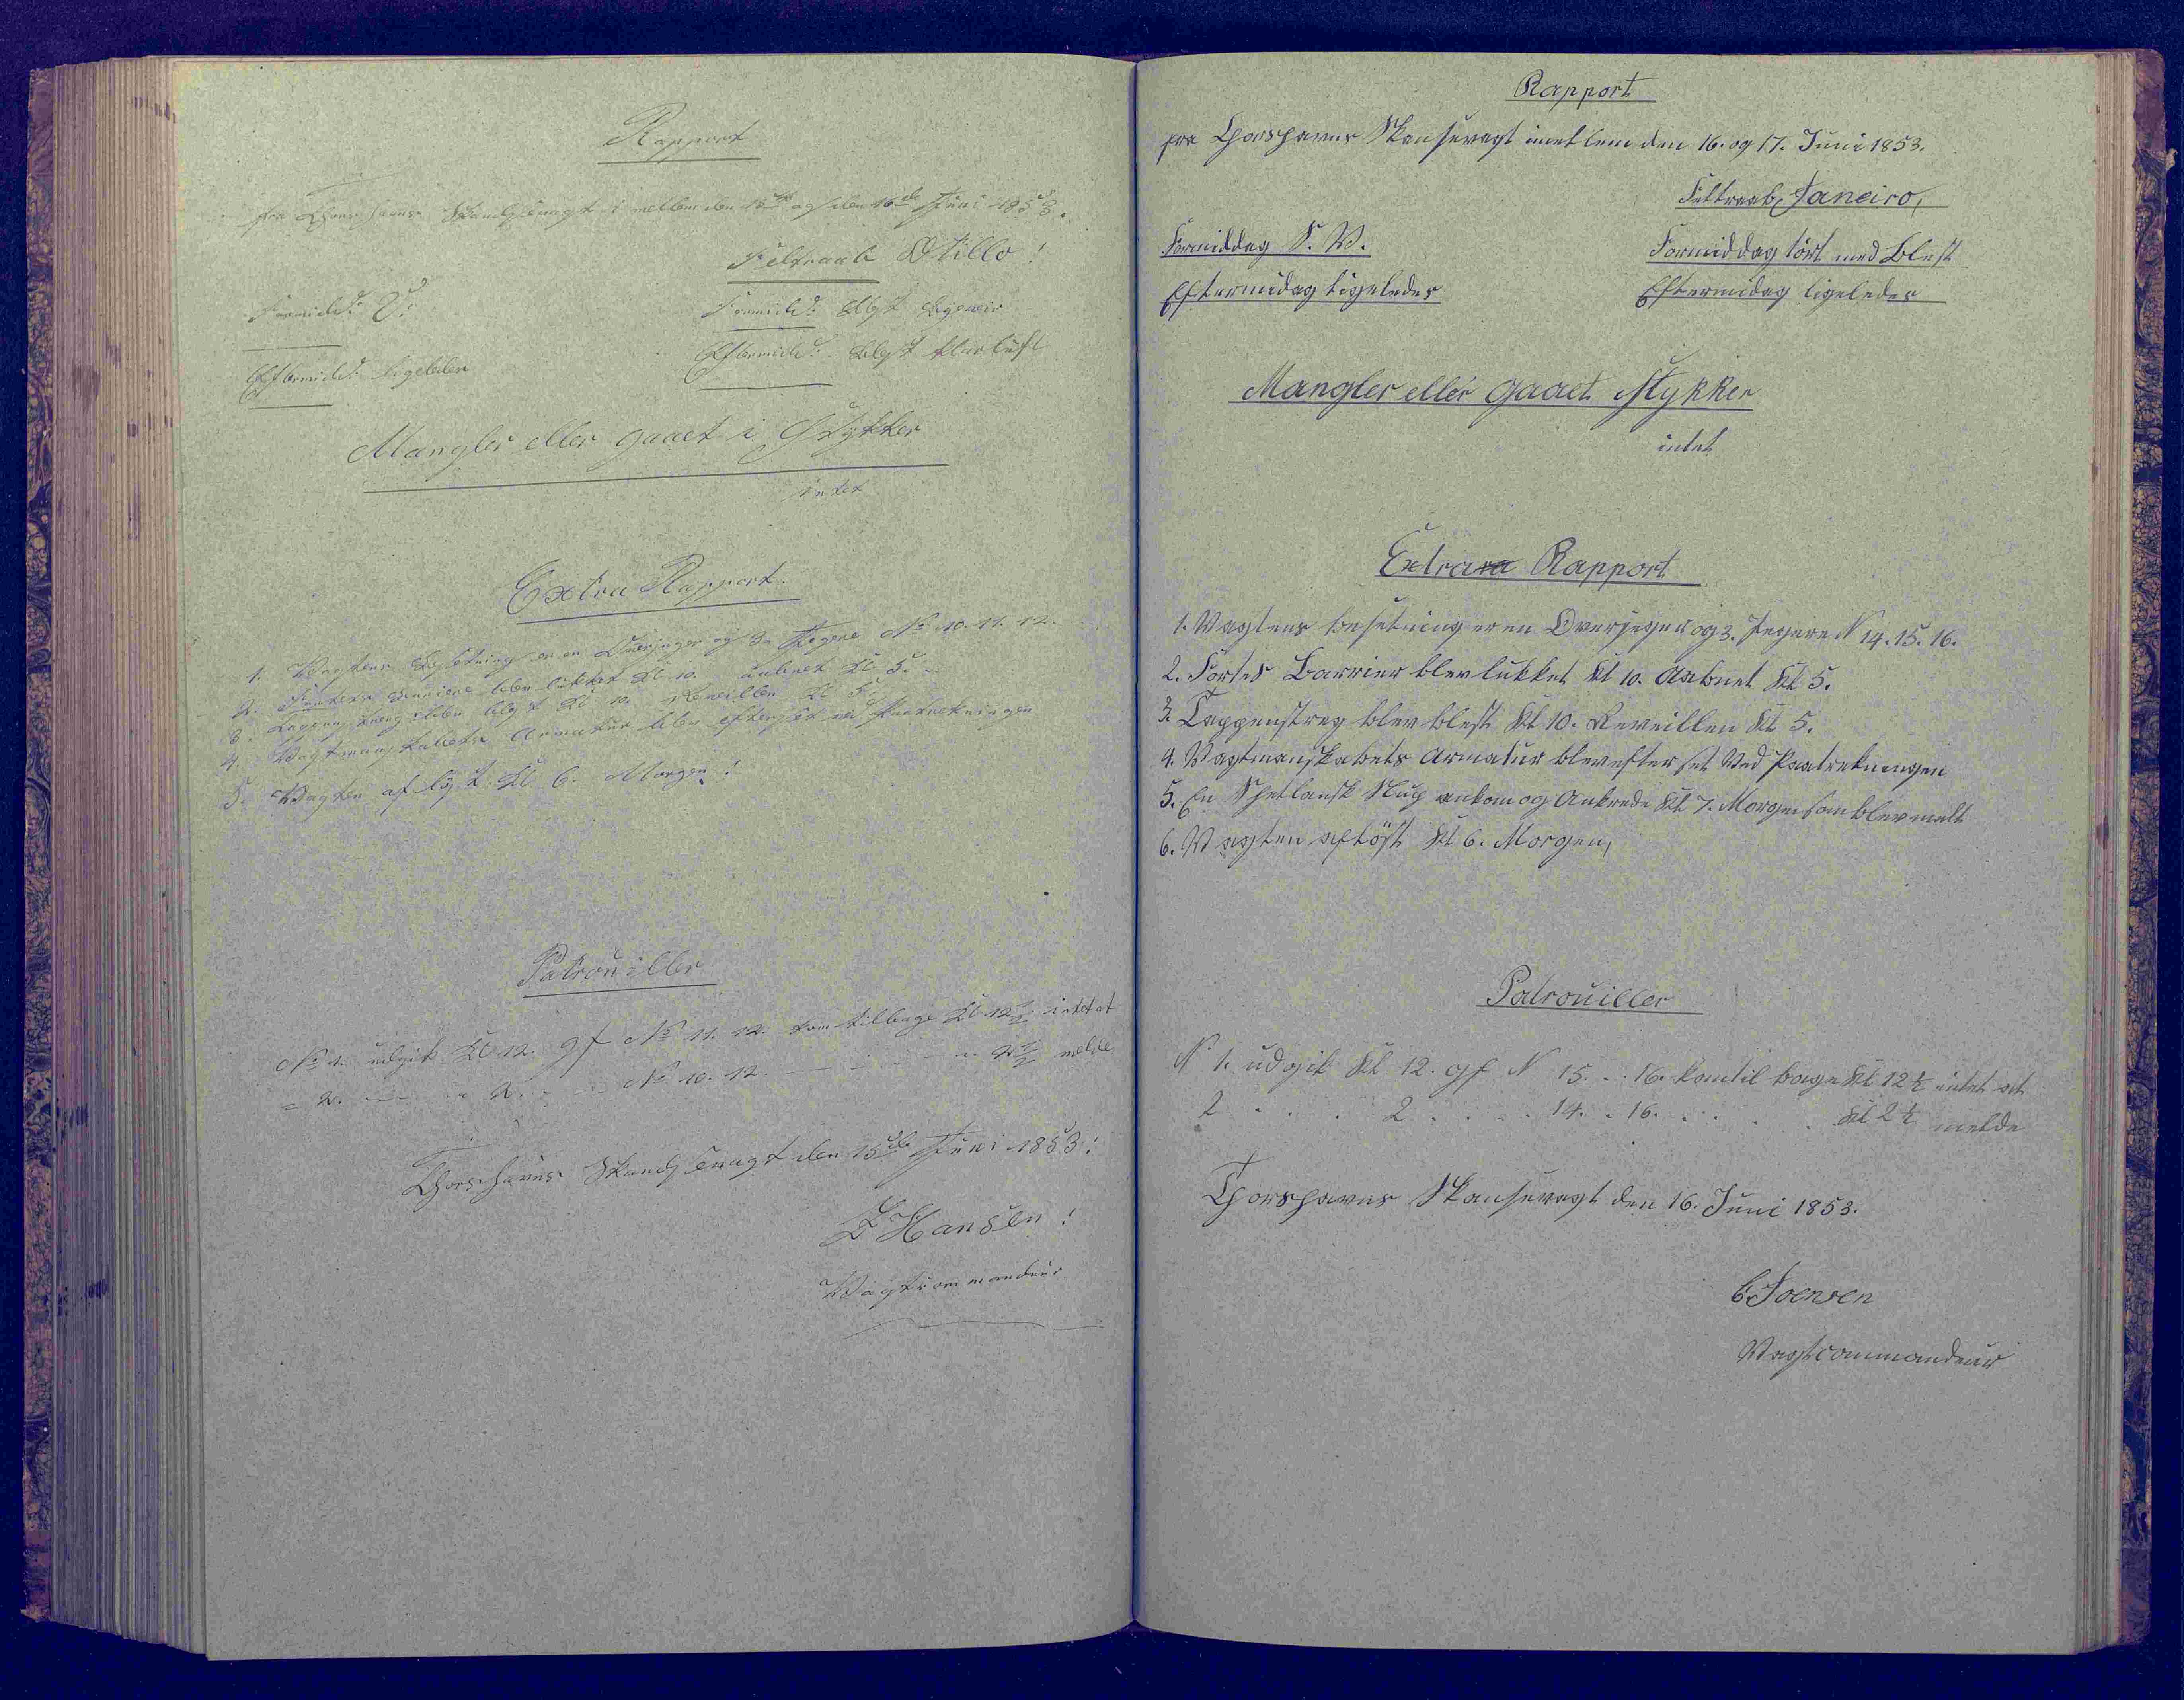 Rapport
fra Thorshavns Skandsevagt i mellem den 15de og den 16de Juni 1853.
Feltraab Otillo!
Formidd: V:
Formidd: blæst
Eftermidd: ligeledes
Eftermidd: blæst klarluft
Mangler eller gaaet i Stykker
intet
Extra Rapport
1. Vagtens Besetning er en Overjeger og 3 Jegere No 10. 11. 12.
2. Fortets Barriere blev lukket Kl 10. aabnet Kl 5.
3. Tappenstreg blev blæst Kl 10. Reveillen Kl 5.
4. Vagtmanskabets Armatur blev efterset ved Paatrekningen
5. Vagten aflöst Kl 6. Morgen!
Patrouiller
No 1. udgik Kl 12. gf No 11. 12. kom tilbage Kl 12½ intet at
- 2. - - 2. - - No 10. 12. - - - - 2½ melde
Thorshavns Skandsevagt den 15de Juni 1853!
Hansen!
Vagtcommandeur
Rapport
fra Thorshavns Skansevagt imellem den 16. og 17. Juni 1853.
Feltraab, Janeiro,
Formiddag S. V.
Formiddag tört med Blest
Eftermidag ligeledes
Eftermidag ligeledes
Mangler eller gaaet Stykker
intet
Extrara Rapport
1. Vagtens besetning er en Overjeger og 3. Jegere N 14. 15. 16.
2. Fortes Barrier blev lukket Kl 10. Aabnet Kl 5.
3. Tappenstreg blev blest Kl 10. Reveillen Kl 5.
4. Vagtmanskabets Armatur blev efterset Ved Paatrekningen
5. En Shetlansk Slup ankom og Ankrede Kl 7. Morgen som blev melt
6. Vagten aflöst Kl 6. Morgen,
Patrouiller
N 1. udgik Kl 12. gf N 15. . 16. kom til bage Kl 12½ intet at
2 . . . . 2 . . . . 14. . 16. . . . . Kl 2½ melde
Thorshavns Skansevagt den 16. Juni 1853.
Joensen
Vagtcommandeur